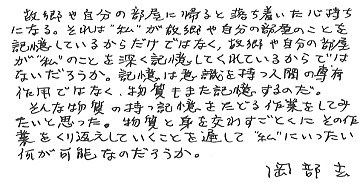 故郷や自分の部屋に帰ると落ち着いた心持ち
になる。それは"私"が故郷や自分の部屋のことを
記憶しているからだけではなく、故郷や自分の部屋
が"私"のことを深く記憶してくれているからでは
ないだろうか。記憶は意識を持つ人間の専有
作用ではなく、物質もまた記憶するのだ。
そんな物質の持つ記憶をたどる作業をして
みたいと思った。物質と身を交わすごとくにその作
業をくり返えしていくことを通して"私"にいったい
何が可能なのだろうか。
岡部玄